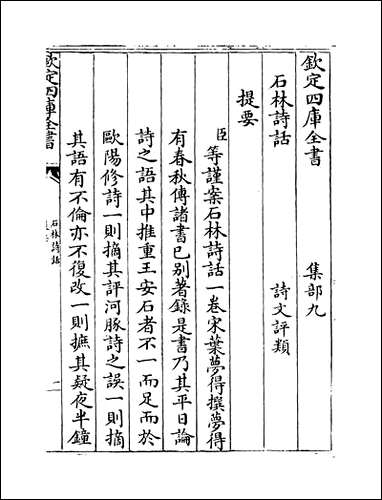 欽定四庫全書 集部九
石林詩話 詩文評類
提要
臣等謹案石林詩話一卷宋葉夢得撰夢得
有春秋傳諸書已别著錄是書乃其平日論
詩之語其中推重王安石者不一而足而於
歐陽修詩一則摘其評河豚詩之誤一則摘
其語有不倫亦不復改一則摭其疑夜半鐘
欽定四庫全書
石林詩話